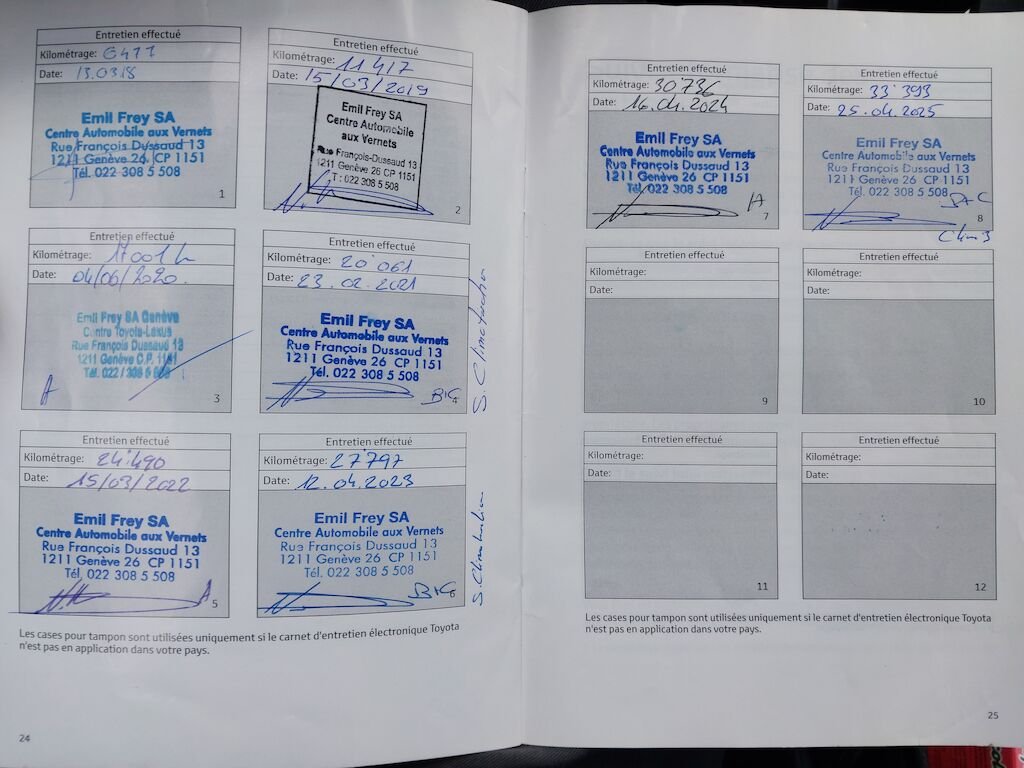 Entretien effectué
Kilométrage: 6477
Date: 13.03.18
Emil Frey SA
Centre Automobile aux Vernets
Rue François Dussaud 13
1211 Genève 26 CP 1151
Tél. 022 308 5 508
1
Entretien effectué
Kilométrage: 11417
Date: 15/03/2019
Emil Frey SA
Centre Automobile
aux Vernets
Rue François-Dussaud 13
1211 Genève 26 CP 1151
T : 022 308 5 508
2
Entretien effectué
Kilométrage: 17001
Date: 04/06/2020.
Emil Frey SA Genève
Centre Toyota-Lexus
Rue François Dussaud 13
1211 Genève C.P. 1151
Tél. 022 / 308 5 508
A
3
Entretien effectué
Kilométrage: 20'061
Date: 23.02.2021
Emil Frey SA
Centre Automobile aux Vernets
Rue François Dussaud 13
1211 Genève 26 CP 1151
Tél. 022 308 5 508
4
Entretien effectué
Kilométrage: 24'490
Date: 15/03/2022
Emil Frey SA
Centre Automobile aux Vernets
Rue François Dussaud 13
1211 Genève 26 CP 1151
Tél. 022 308 5 508
A
5
Entretien effectué
Kilométrage: 27'797
Date: 12.04.2023
Emil Frey SA
Centre Automobile aux Vernets
Rue François Dussaud 13
1211 Genève 26 CP 1151
Tél. 022 308 5 508
6
Les cases pour tampon sont utilisées uniquement si le carnet d'entretien électronique Toyota
n'est pas en application dans votre pays.
24
Entretien effectué
Kilométrage: 30'736
Date: 16.04.2024
Emil Frey SA
Centre Automobile aux Vernets
Rue François Dussaud 13
1211 Genève 26 CP 1151
Tél. 022 308 5 508
7
Entretien effectué
Kilométrage: 33'393
Date: 25.04.2025
Emil Frey SA
Centre Automobile aux Vernets
Rue François Dussaud 13
1211 Genève 26 CP 1151
Tél. 022 308 5 508
8
Entretien effectué
Kilométrage:
Date:
9
Entretien effectué
Kilométrage:
Date:
10
Entretien effectué
Kilométrage:
Date:
11
Entretien effectué
Kilométrage:
Date:
12
Les cases pour tampon sont utilisées uniquement si le carnet d'entretien électronique Toyota
n'est pas en application dans votre pays.
25